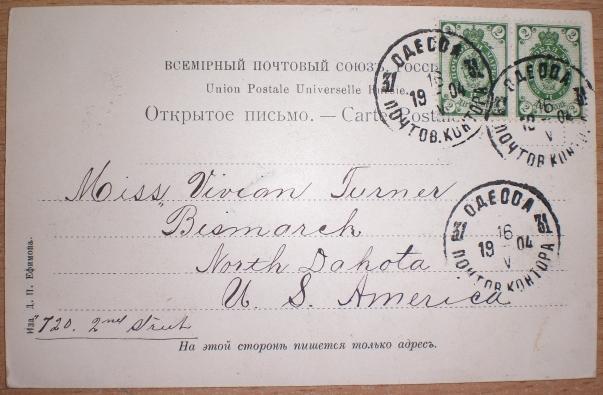 ВСЕМІРНЫЙ ПОЧТОВЫЙ СОЮЗЪ. РОССІЯ
Union Postale Universelle Russie.
Открытое письмо. — Carte Postale
2 2 2 2
ОДЕССА
31 31
16
19 04
V
ПОЧТОВ. КОНТОРА
ОДЕССА
31
16
19 04
V
ПОЧТОВ. КОНТОРА
ОДЕССА
31 31
16
19 04
V
ПОЧТОВ. КОНТОРА
Miss Vivian Turner
Bismarck
North Dakota
U. S. America
720. 2nd Street
На этой сторонѣ пишется только адресъ.
Изд. Д. П. Ефимова.